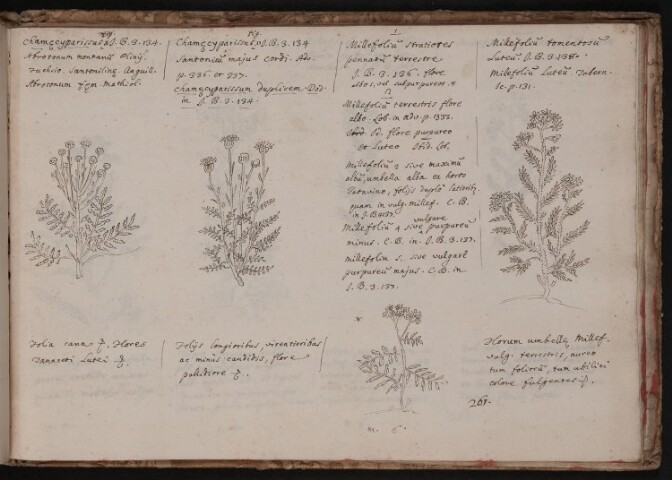 Chamæcyparissus J. B. 3. 134.
Abrotonum montanum
Fuchsio. Santonilina Anguil.
Abrotonum fœm. Mathiol.
Chamæcyparissus J. B. 3. 134
Santonicū majus Cordi. Adv.
p. 336. et 337.
Chamæcyparissum duplicem Dod.
in J. B. 3. 134.
1
Millefoliū stratiotes
pennatū terrestre
J. B. 3. 136. flore
albo, vel subpurpureo.
Millefoliū terrestris flore
albo. Lob. in adv. p. 332.
Id. flore purpureo
et Luteo Ibid. Lob.
Millefoliū sive maximū
albū, umbella alba ex horto
Patavino, folijs duplo latiorib;
quam in vulg. millef. C. B.
in J. B. 137.
Millefoliū 4 sive vulgare purpureū
minus. C. B. in J. B. 3. 137.
millefoliū 5. sive vulgare
purpureū majus. C. B. in
J. B. 3. 137.
Millefoliū tomentosū
Luteū. J. B. 3. 138.
Millefoliū Luteū Tabern.
Ic. p. 131.
Folia cana Flores
Tanaceti Lutei
Folijs longioribus, virentioribus
ac minus candidis, flore
pallidiore
Florum umbellæ Millef.
vulg. terrestris, aureo
tum foliorū, tum
colore fulgentes
261.
m. 6